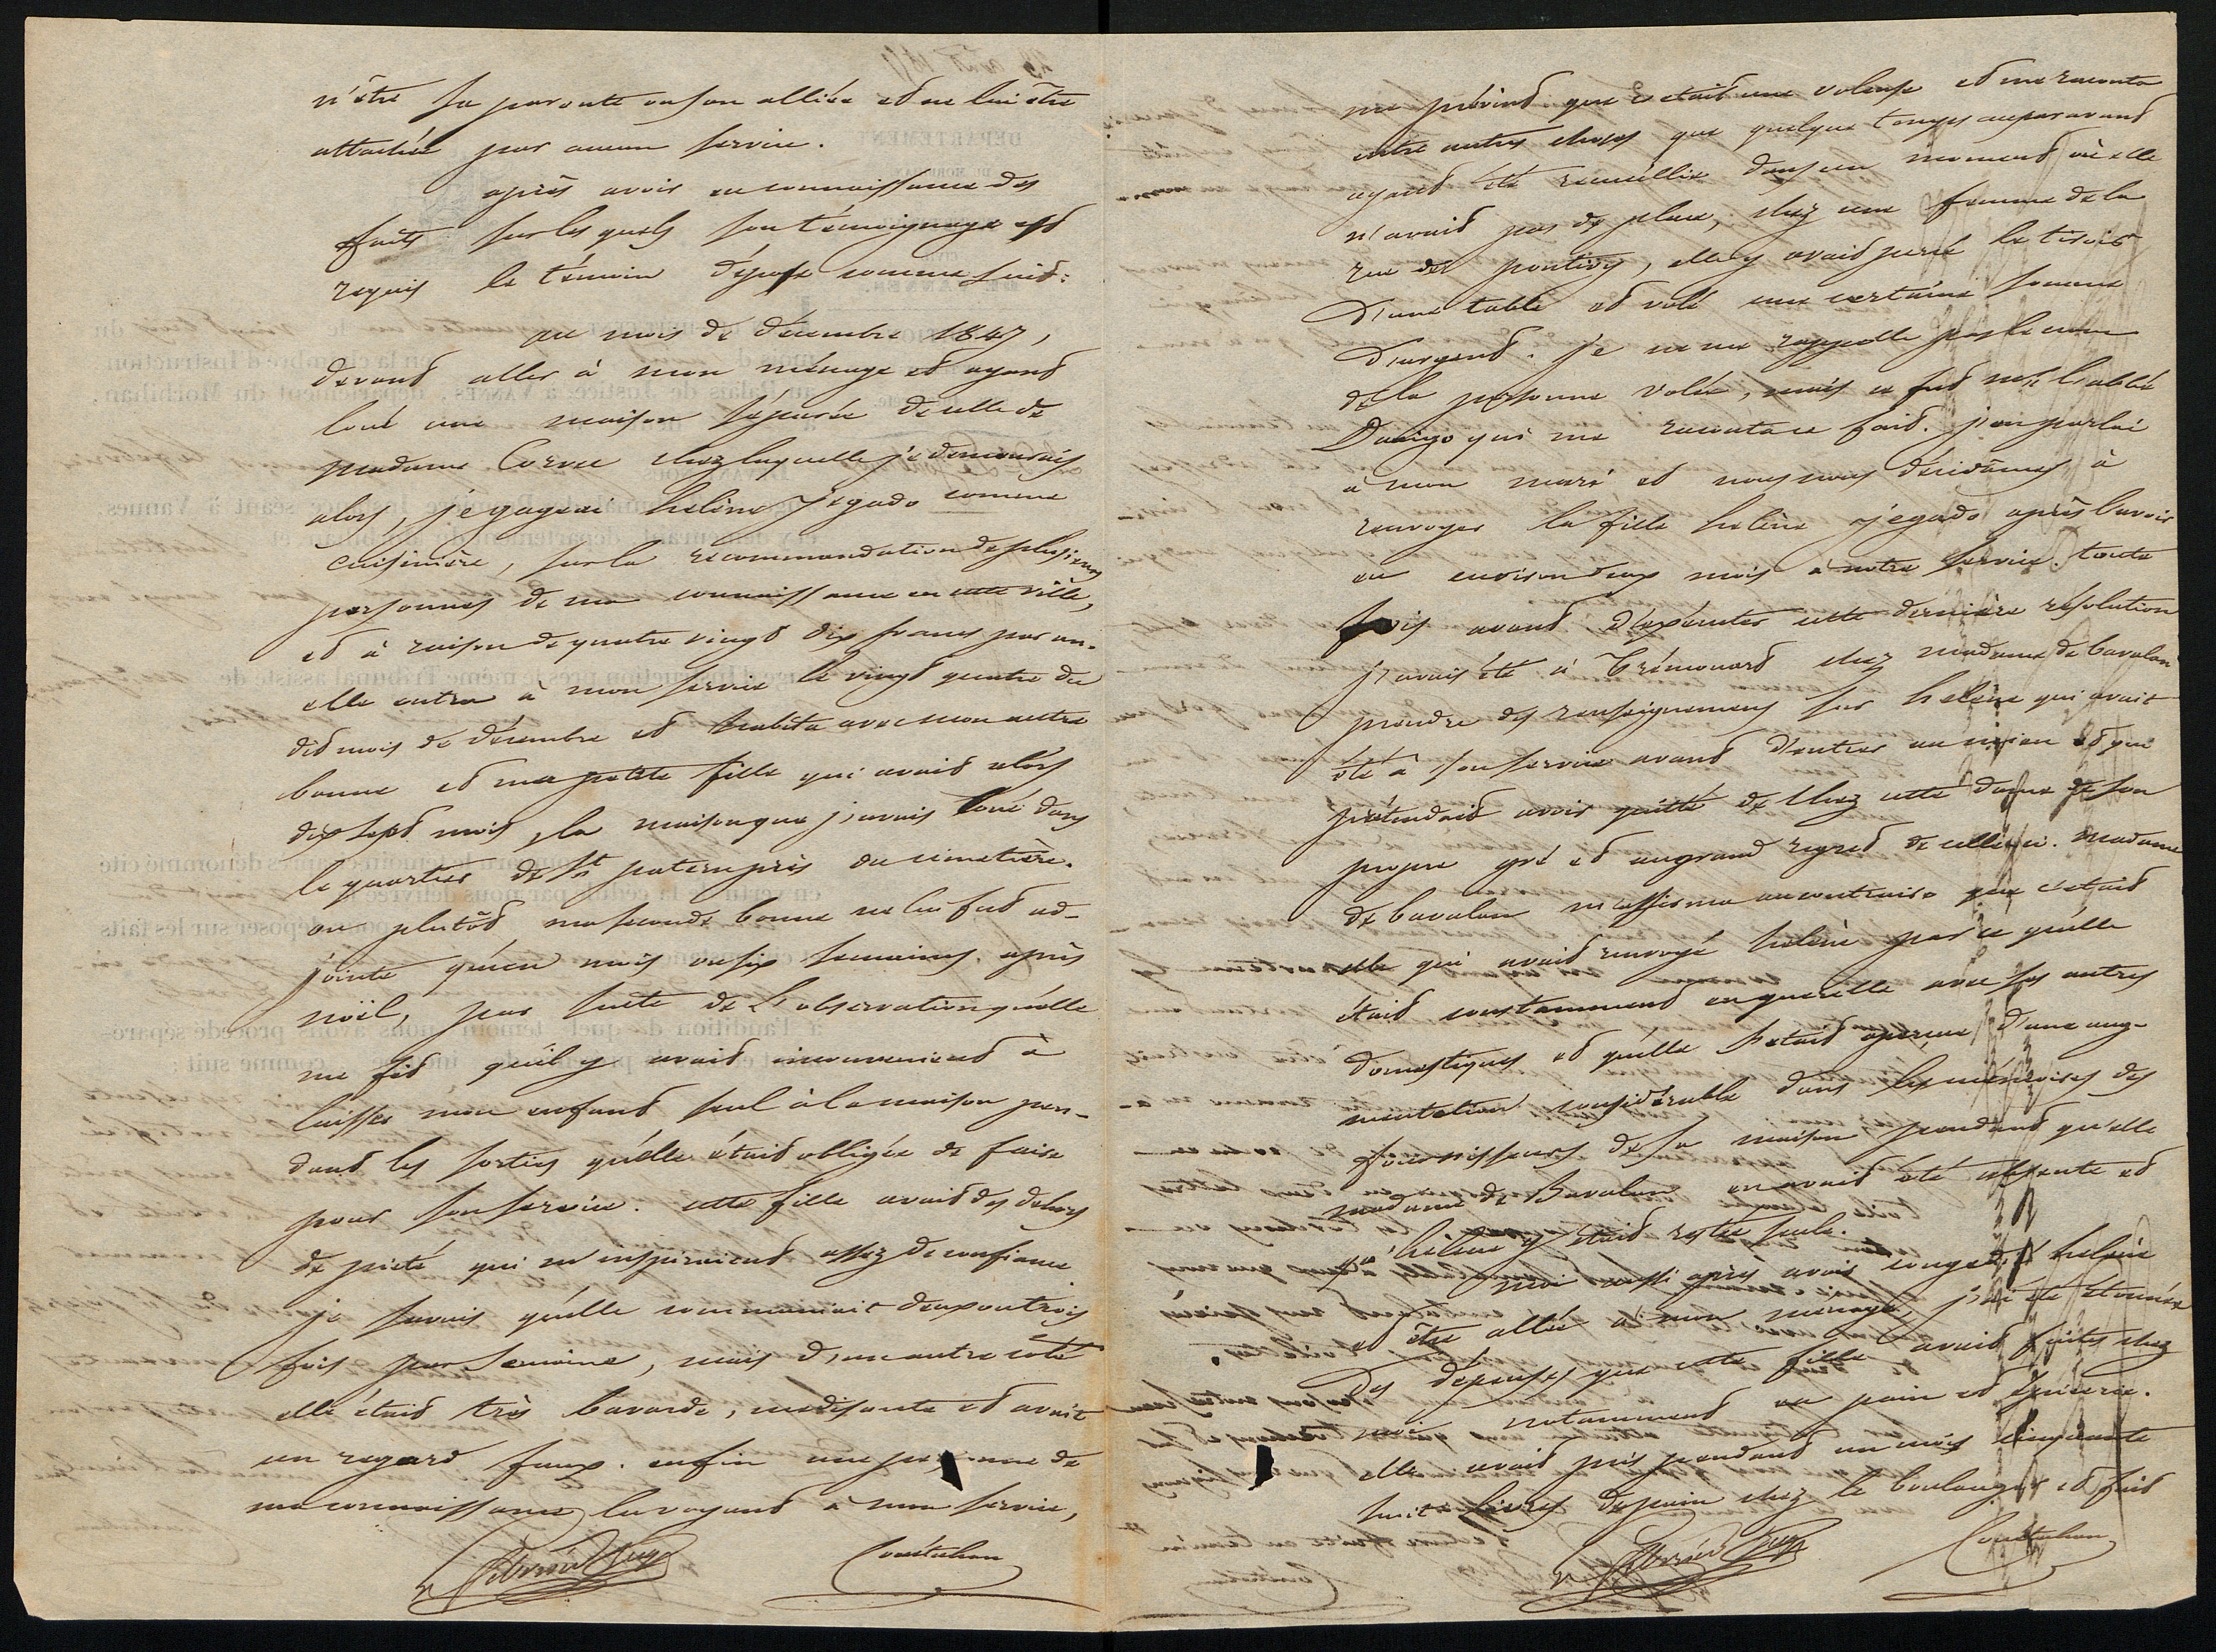 n'être sa parente ou son alliée et ne lui être
attachée par aucun service.
après avoir eu connaissance des
faits sur lesquels son témoignage est
requis le témoin dépose comme suit:
au mois de décembre 1847,
devant aller à mon ménage et ayant
loué une maison séparée de celle de
madame Corvec chez laquelle je demeurais
alors, je gageai helène jegado comme
cuisinière, sur la recommandation de plusieurs
personnes de ma connaissance en cette ville,
et à raison de quatre vingt dix francs par an.
elle entra à mon service le vingt quatre du
dit mois de décembre et habita avec mon autre
bonne et ma petite fille qui avait alors
dix sept mois, la maison que j'avais loué dans
le quartier de St patern près du cimetière.
ou plutôt ma seconde bonne ne lui fut ad-
jointe qu'un mois ou six semaines après
noël, par suite de l'observation qu'elle
me fit qu'il y avait inconvenient à
laisser mon enfant seul à la maison pen-
dant les sorties qu'elle était obligée de faire
pour son service. cette fille avait des dehors
de pieté qui m'inspiraient assez de confiance
je savais qu'elle communiait deux ou trois
fois par semaine, mais d'un autre côté
elle était très bavarde, medisante et avait
un regard faux. enfin une personne de
ma connaissance la voyant à mon service,
me prévint que c'etait une voleuse et me raconta
entre autres choses que quelque temps auparavant
ayant été recueillie dans un moment où elle
n'avait pas de place, chez une femme de la
rue de pontivy, elle y avait percé le tiroir
d'une table et volé une certaine somme
d'argent. je ne me rappelle pas le nom
de la personne volée, mais ce fut mr l'abbé
Dorigo qui me raconta ce fait. j'en parlai
à mon mari et nous nous décidâmes à
renvoyer la fille helène jegado après l'avoir
eu environ deux mois à notre service. toute
fois avant d'exécuter cette dernière résolution
j'avais été à Trémouard chez madame de bavalan
prendre des renseignemens sur helène qui avait
été à son service avant d'entrer au mien et qui
prétendait avoir quitté de chez cette dame de son
propre gré et au grand regret de celle-ci. madame
de bavalan m'affirma au contraire que c'etait
elle qui avait renvoyé helène parce qu'elle
était constamment en querelle avec ses autres
domestiques et qu'elle s'etait aperçue d'une aug-
mentation considérable dans les mémoires des
fournisseurs de sa maison pendant qu'elle
madame de Bavalan en avait été absente et
qu'helène y était restée seule.
moi aussi après avoir congedié helène
et être allée à mon menage, j'ai été étonnée
des dépenses que cette fille avait faites chez
moi notamment en pain et épicerie.
elle avait pris pendant un mois cinquante
huit livres de pain chez le boulanger et fait